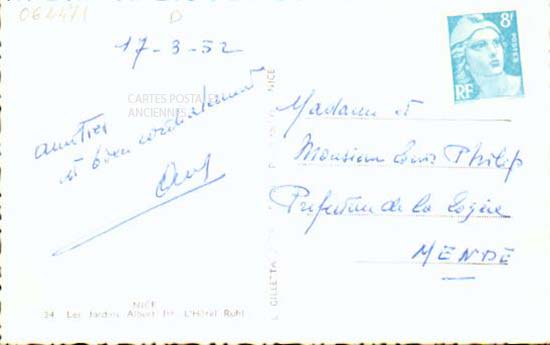 064471 D
17-3-52
CARTES POSTALES
ANCIENNES
amitiés
et bien cordialement
NICE
34 Les Jardins Albert Ier L'Hôtel Ruhl
GILLETTA
NICE
8F
POSTES
RF
Madame et
Monsieur Louis Philip
Préfecture de la Lozère
MENDE